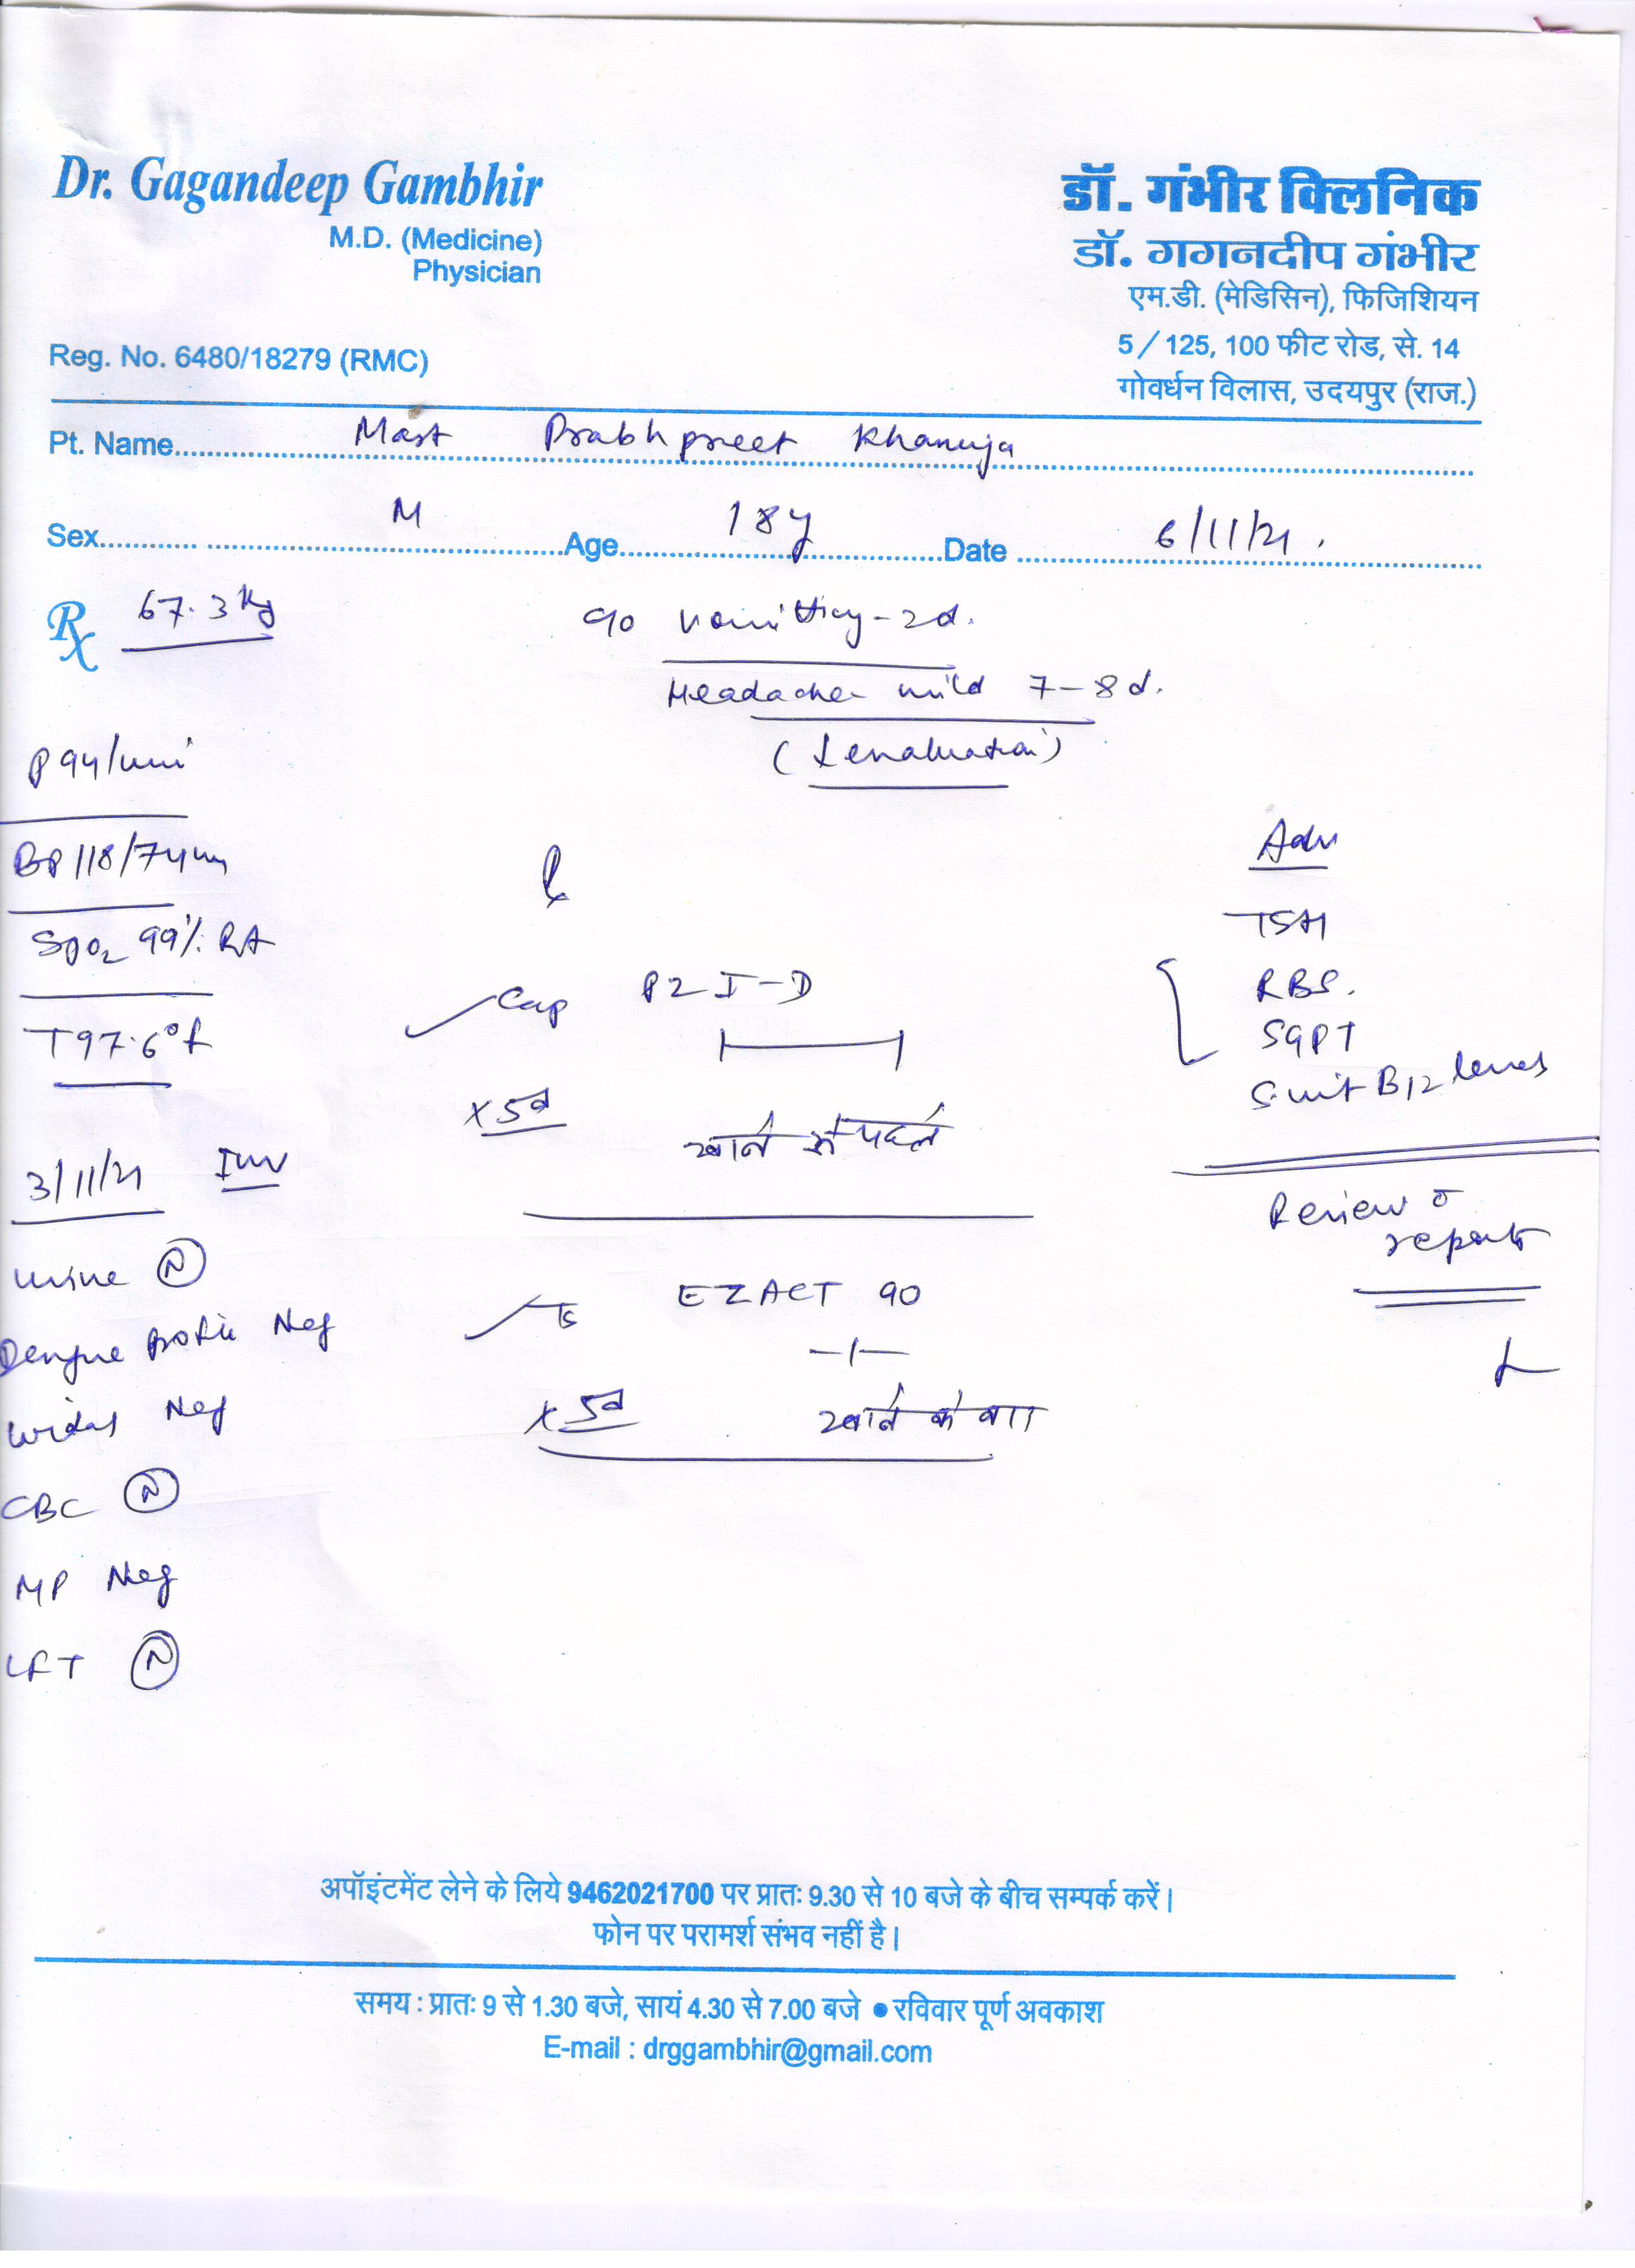 Dr. Gagandeep Gambhir
M.D. (Medicine)
Physician
Reg. No. 6480/18279 (RMC)
डॉ. गंभीर क्लिनिक
डॉ. गगनदीप गंभीर
एम.डी. (मेडिसिन), फिजिशियन
5/125, 100 फीट रोड, से. 14
गोवर्धन विलास, उदयपुर (राज.)
Pt. Name Mast Prabhpreet Khanuja
Sex M Age 18y Date 6/11/21.
Rx 67.3 kg
c/o vomitting - 2d.
Headache mild 7-8d.
P 94/min
BP 118/74
SpO2 99% RA
T 97.6°f
3/11/21 Inv
Urine (N)
Dengue profile Neg
Widal Neg
CBC (N)
MP Neg
LFT (N)
Cap
x 5d
खाने से पहले
EZACT 90
-1-
x 5d
खाने के
Adv
TSH
RBS.
SGPT
S. vit B12 levels
Review c̄
reports
अपॉइंटमेंट लेने के लिये 9462021700 पर प्रातः 9.30 से 10 बजे के बीच सम्पर्क करें।
फोन पर परामर्श संभव नहीं है।
समय : प्रातः 9 से 1.30 बजे, सायं 4.30 से 7.00 बजे ● रविवार पूर्ण अवकाश
E-mail : drggambhir@gmail.com